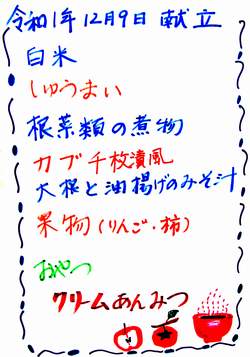 令和1年12月9日 献立
白米
しゅうまい
根菜類の煮物
カブ千枚漬風
大根と油揚げのみそ汁
果物(りんご・柿)
おやつ
クリームあんみつ